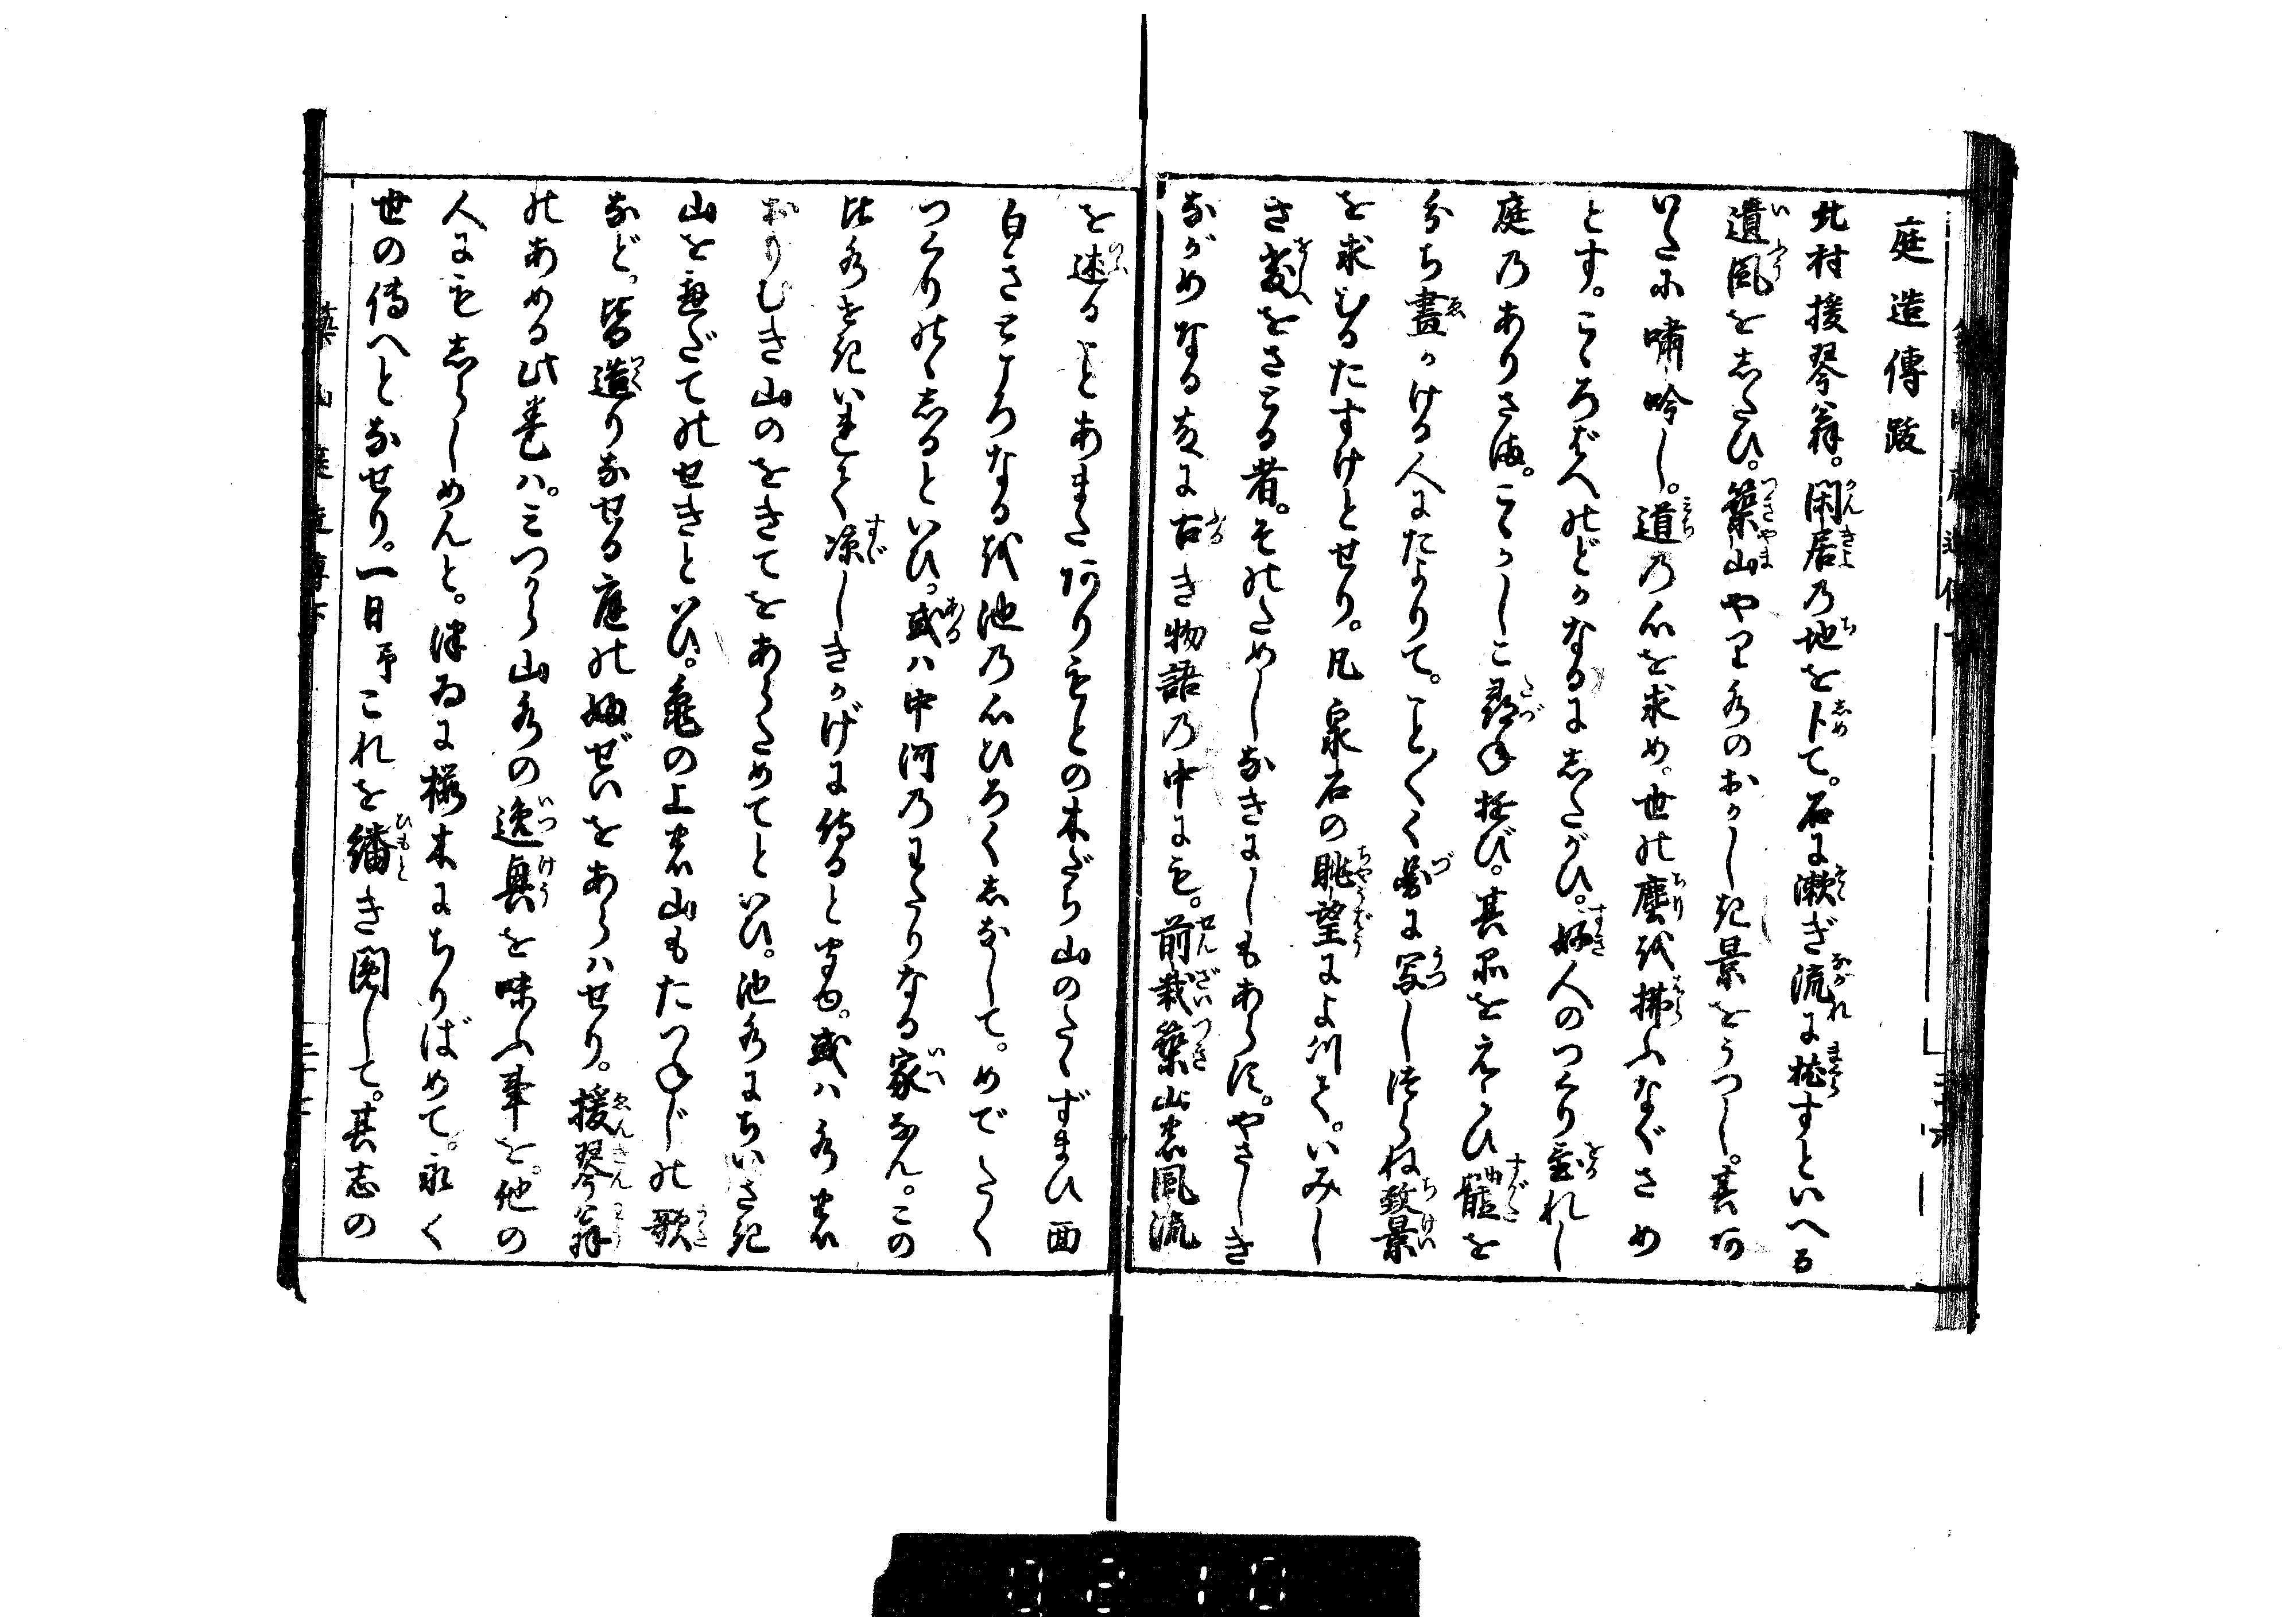 庭造傳跋
北村援琴翁。閑居乃地を卜て。石に漱ぎ流に枕すといへる
遺風をしたひ。築山やり水のおかしき景をうつし。其阿
いたに嘯吟し。道乃心を求め。世の塵を拂ふなぐさめ
とす。こゝろばへのどかなるにしたがひ。好人のつくり置れし
庭乃ありさま。こゝかしこ尋ね遊び。其品をえらひ體を
分ち畫かける人にたよりて。こと〴〵く圖に写しつらね致景
を求むるたすけとせり。凡泉石の眺望によりて。いみし
きをさとる者。そのためしなきにしもあらす。やさしき
ながめなる文に古き物語乃中にも。前栽築山の風流
を述ることあまたありもとの木だち山のたゝずまひ面
白きところなるを池乃心ひろくしなして。めでたく
つくりのゝしるといひ。或ハ中河乃わたりなる家なん。この
比水せきいれて凉しきかげに侍ると聞ゆ。或ハ水の
おもむき山のをきてをあらためてといひ。池水にちいさき
山をへだてのせきといひ。亀の上の山もたつねじの歌
など。皆造りなせる庭のふぜいをあらハせり。援琴翁
のあめる此巻ハ。みつから山水の逸興を味ふ事を。他の
人にもしらしめんと。つゐに桜木にちりばめて。永く
世の傳へとなせり。一日予これを繙き閲して。其志の